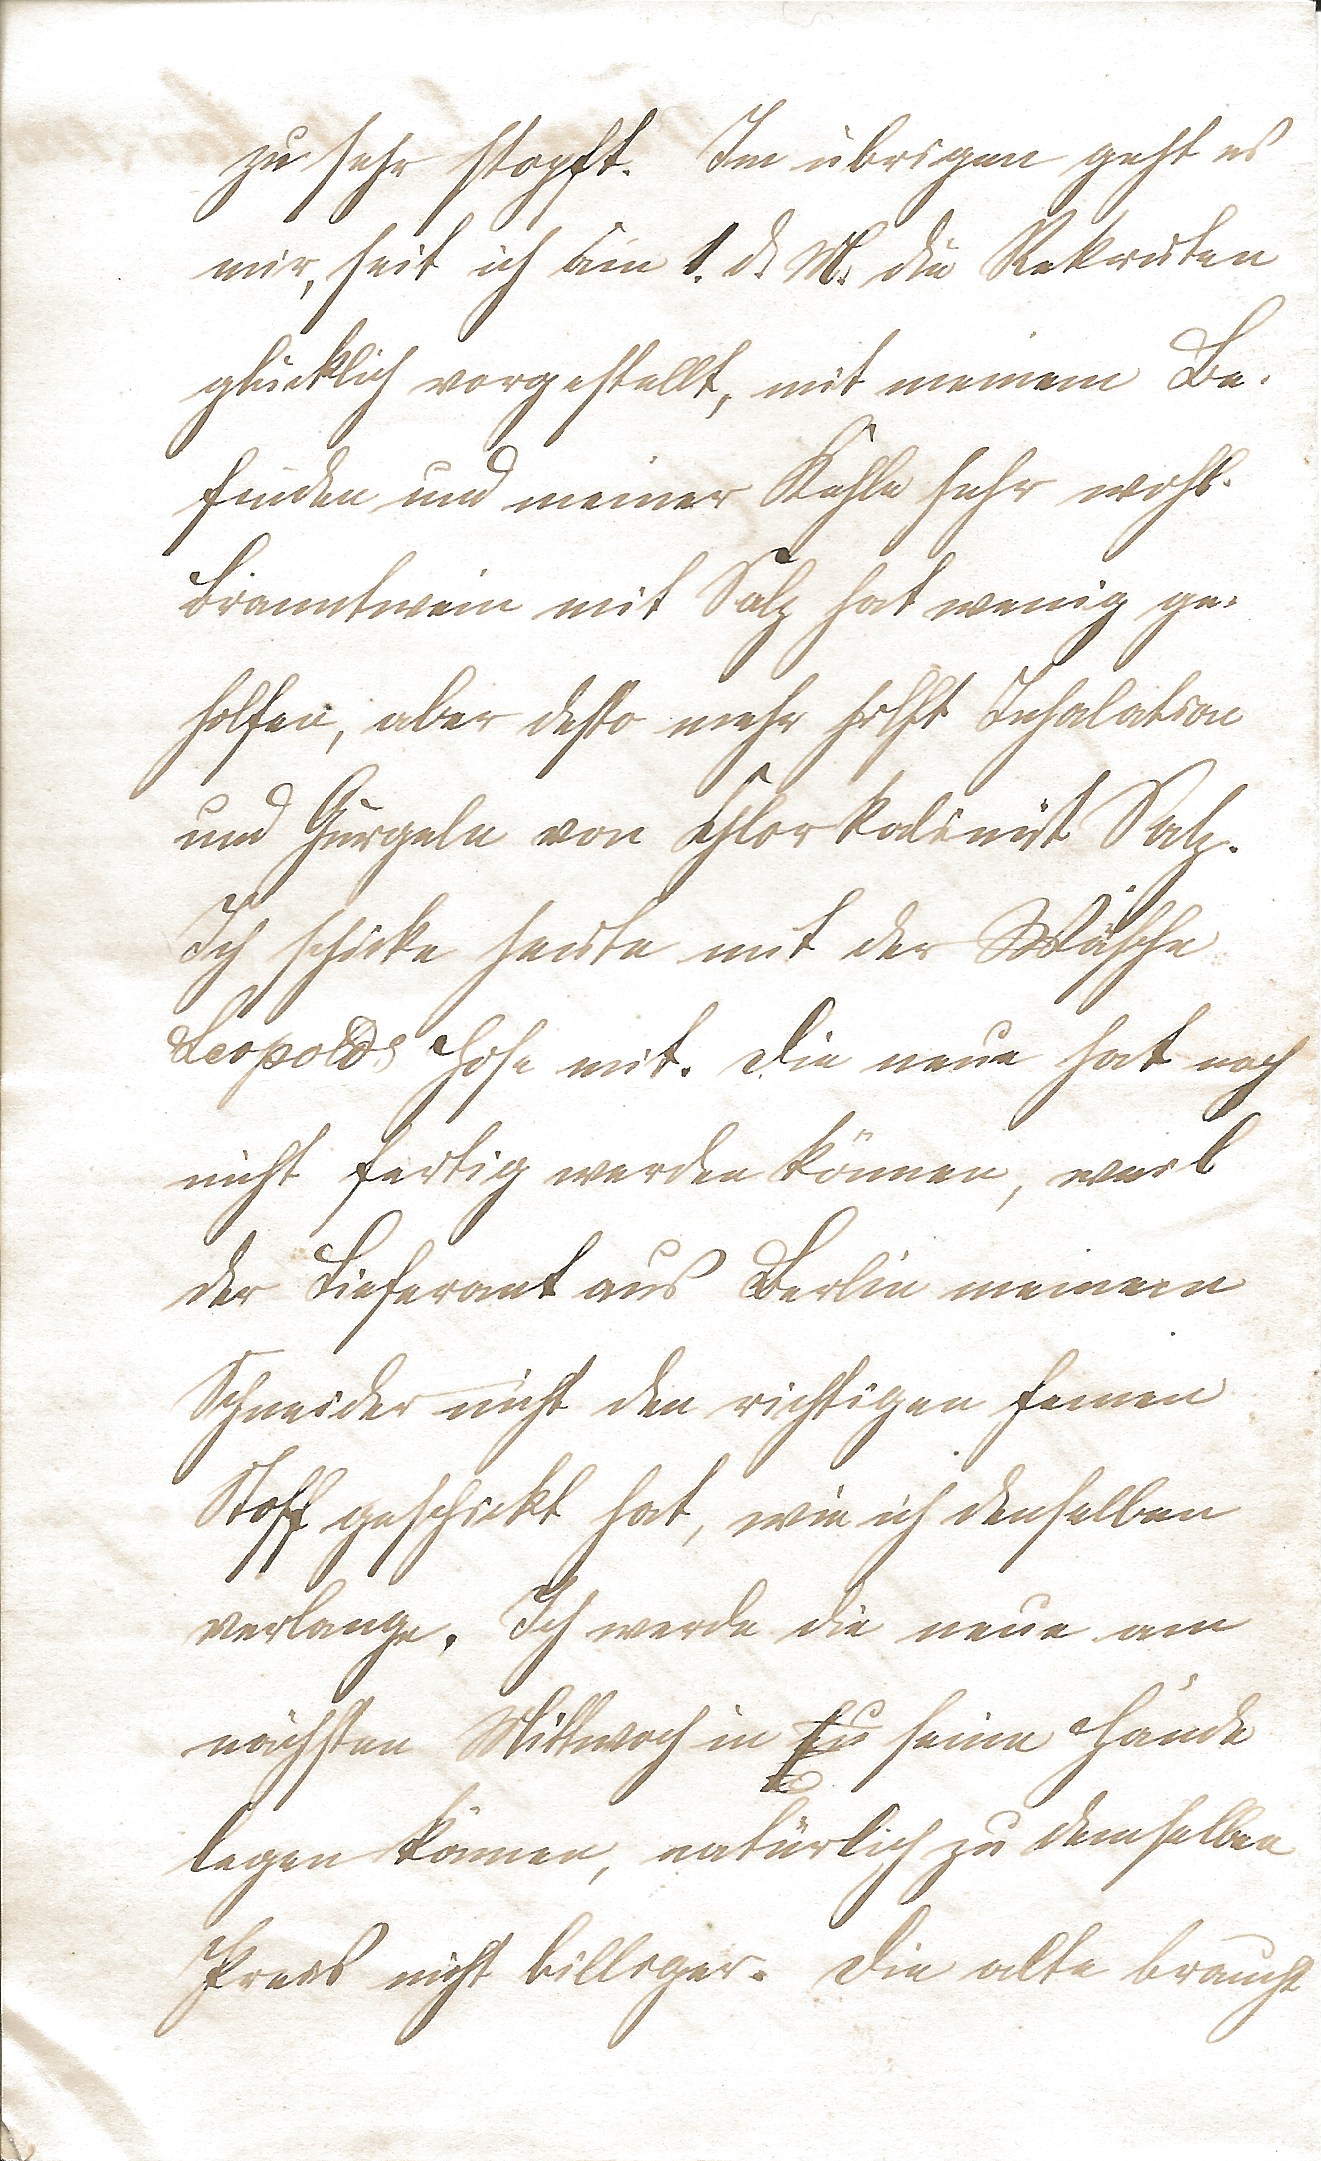 zu sehr stopft. Im übrigen geht es
mir, seit ich am 1. d. M. die Rekruten
glücklich vorgestellt, mit meinem Be-
finden und meiner Kehle sehr wohl.
Branntwein mit Salz hat wenig ge-
holfen, aber desto mehr hilft Inhalation
und Gurgeln von Chlor Kali mit Salz.
Ich schicke heute mit der Wäsche
Leopolds Hose mit. Die neue hat noch
nicht fertig werden können, weil
der Lieferant aus Berlin meinem
Schneider nicht den richtigen feinen
Stoff geschickt hat, wie ich denselben
verlange. Ich werde die neue am
nächsten Mittwoch in seine Hände
legen können, natürlich zu demselben
Preis nicht billiger. Die alte braucht